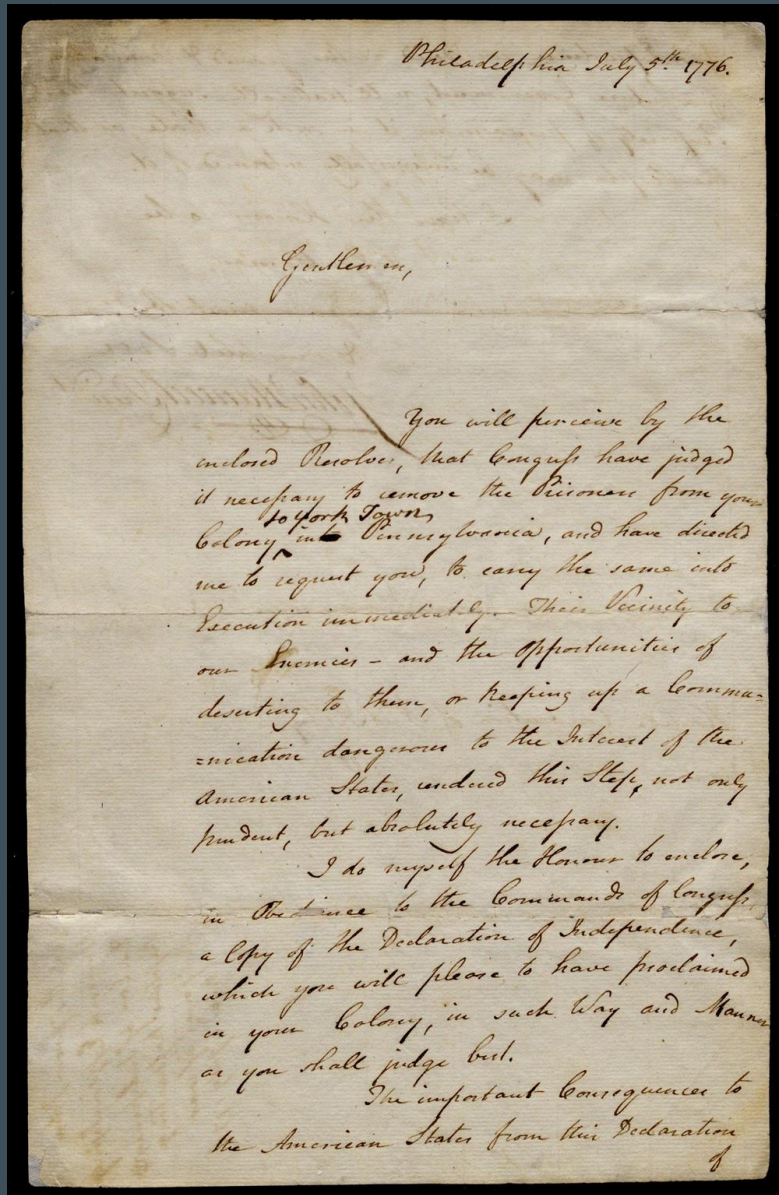 Philadelphia July 5th. 1776.
Gentlemen,
You will perceive by the
enclosed Resolves, that Congress have judged
it necessary to remove the Prisoners from your
to York Town
Colony in Pennsylvania, and have directed
me to request you, to carry the same into
Execution immediately. Their Vicinity to
our Enemies - and the Opportunities of
deserting to them, or keeping up a Commu=
=nication dangerous to the Interest of the
American States, rendered this Step, not only
prudent, but absolutely necessary.
I do myself the Honour to enclose,
in Obedience to the Commands of Congress,
a Copy of the Declaration of Independence,
which you will please to have proclaimed
in your Colony, in such Way and Manner
as you shall judge best.
The important Consequences to
the American States from this Declaration
of